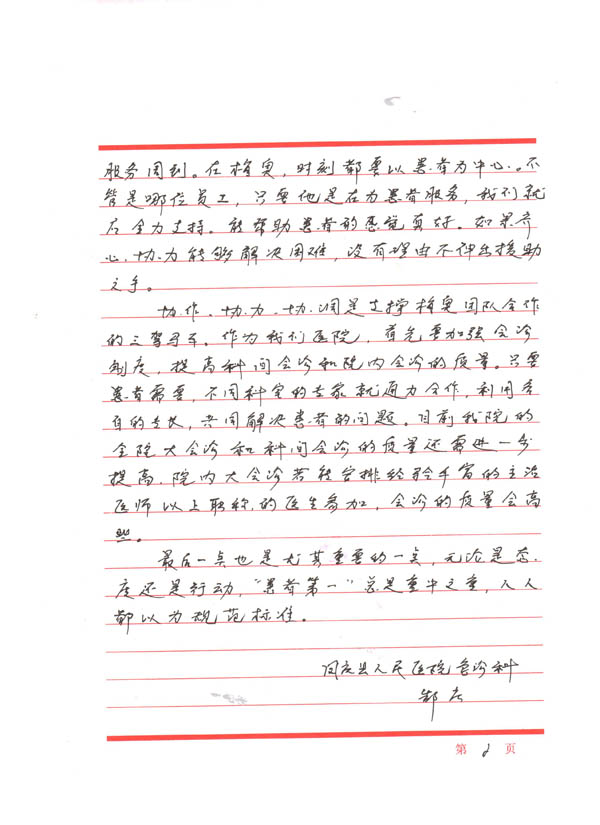 服务周到。在梅奥，时刻都要以患者为中心。不
管是哪位员工，只要他是在为患者服务，我们就
应全力支持。能帮助患者的感觉真好。如果齐
心协力能够解决困难，没有理由不伸出援助
之手。
协作、协力、协调是支撑梅奥团队合作
的三驾马车。作为我们医院，首先要加强会诊
制度，提高科间会诊和院内会诊的质量。只要
患者需要，不同科室的专家就通力合作，利用各
自的专长，共同解决患者的问题。目前我院的
全院大会诊和科间会诊的质量还需进一步
提高，院内大会诊若能安排经验丰富的主治
医师以上职称的医生参加，会诊的质量会高
些。
最后一点也是尤其重要的一点，无论是态
度还是行动，“患者第一”总是重中之重，人人
都以为规范标准。
县人民医院急诊科
第 2 页